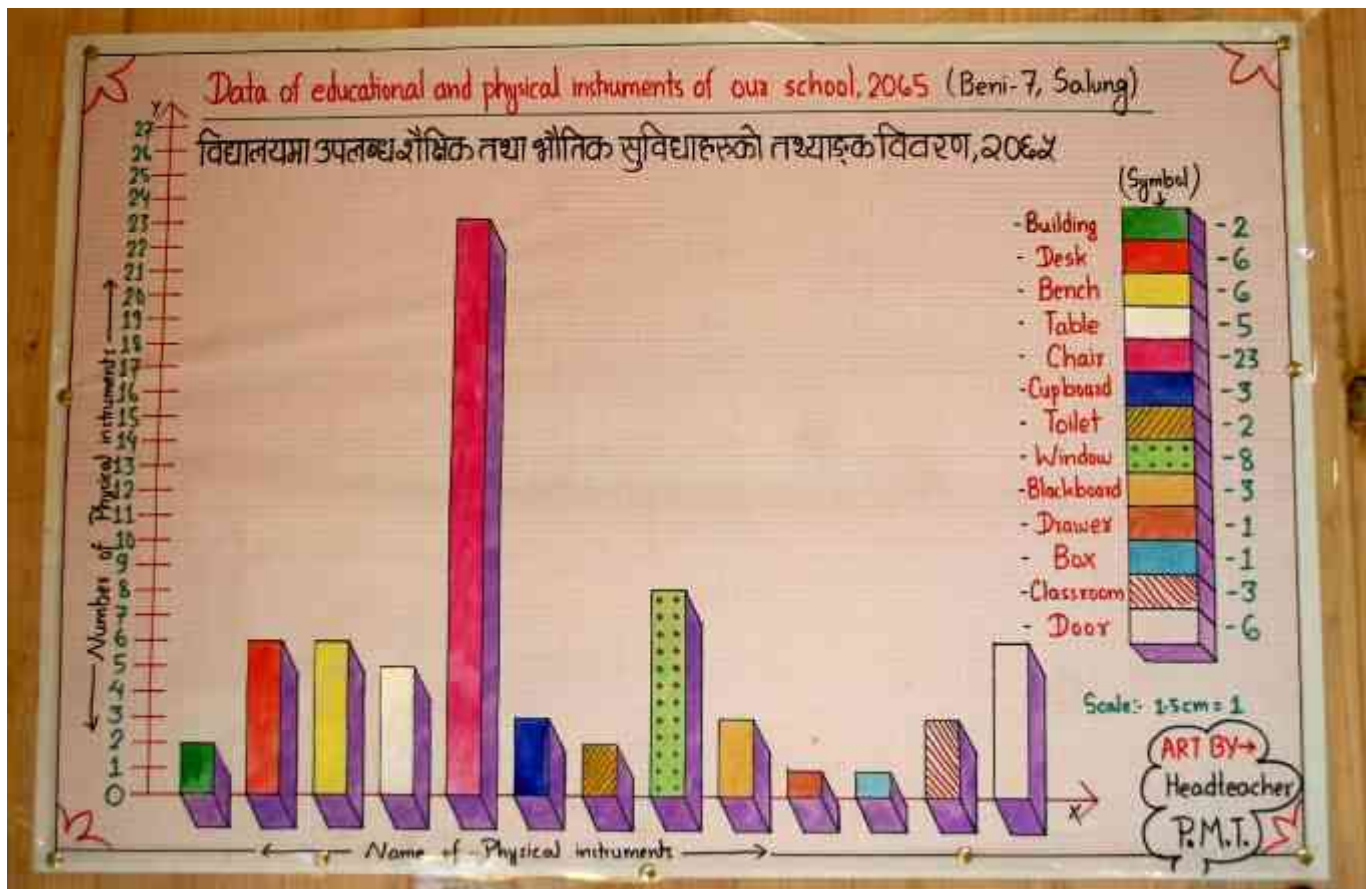 Data of educational and physical instruments of our school, 2065 (Beni-7, Salung)
विद्यालयमा उपलब्ध शैक्षिक तथा भौतिक सुविधाहरुको तथ्याङ्क विवरण, २०६५
Y
27
26
25
24
23
22
21
20
19
18
17
16
15
14
13
12
11
10
9
8
7
6
5
4
3
2
1
0
Number of Physical instruments
(Symbol)
-Building -2
- Desk -6
- Bench -6
- Table -5
- Chair -23
-Cupboard -3
- Toilet -2
- Window -8
-Blackboard -3
- Drawer -1
- Box -1
-Classroom -3
- Door -6
Scale:- 1.5cm = 1
X
Name of Physical instruments
ART BY→
Headteacher
P.M.T.